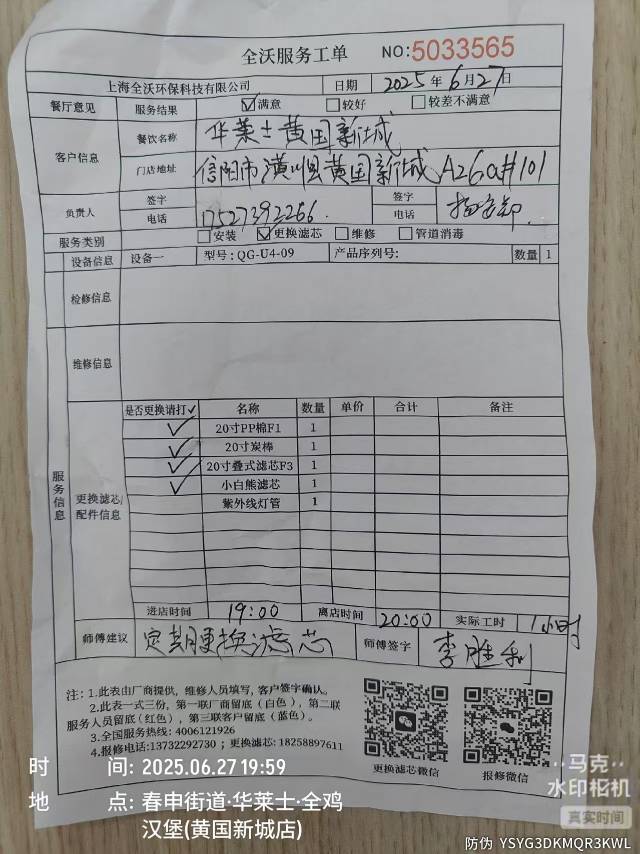 全沃服务工单 NO:5033565
上海全沃环保科技有限公司 日期 2025年6月27日
餐厅意见 服务结果 ☑满意 □较好 □较差不满意
客户信息 餐饮名称 华莱士黄国新城
门店地址 信阳市潢川县黄国新城A26a#101
负责人 签字 签字
电话 17527392266. 电话
服务类别 □安装 ☑更换滤芯 □维修 □管道消毒
设备信息 设备一 型号:QG-U4-09 产品序列号: 数量 1
检修信息
维修信息
服务信息
更换滤芯/配件信息
是否更换请打✓ 名称 数量 单价 合计 备注
✓ 20寸PP棉F1 1
✓ 20寸炭棒 1
✓ 20寸叠式滤芯F3 1
✓ 小白熊滤芯 1
紫外线灯管 1
进店时间 19:00 离店时间 20:00 实际工时 1小时
师傅建议 定期更换滤芯 师傅签字 李胜利
注:1.此表由厂商提供,维修人员填写,客户签字确认。
2.此表一式三份,第一联厂商留底(白色),第二联
服务人员留底(红色),第三联客户留底(蓝色)。
3.全国服务热线:4006121926
4.报修电话:13732292730;更换滤芯:18258897611
更换滤芯微信 报修微信
时 间: 2025.06.27 19:59
地 点: 春申街道·华莱士·全鸡
汉堡(黄国新城店)
马克
水印相机
真实时间
防伪 YSYG3DKMQR3KWL